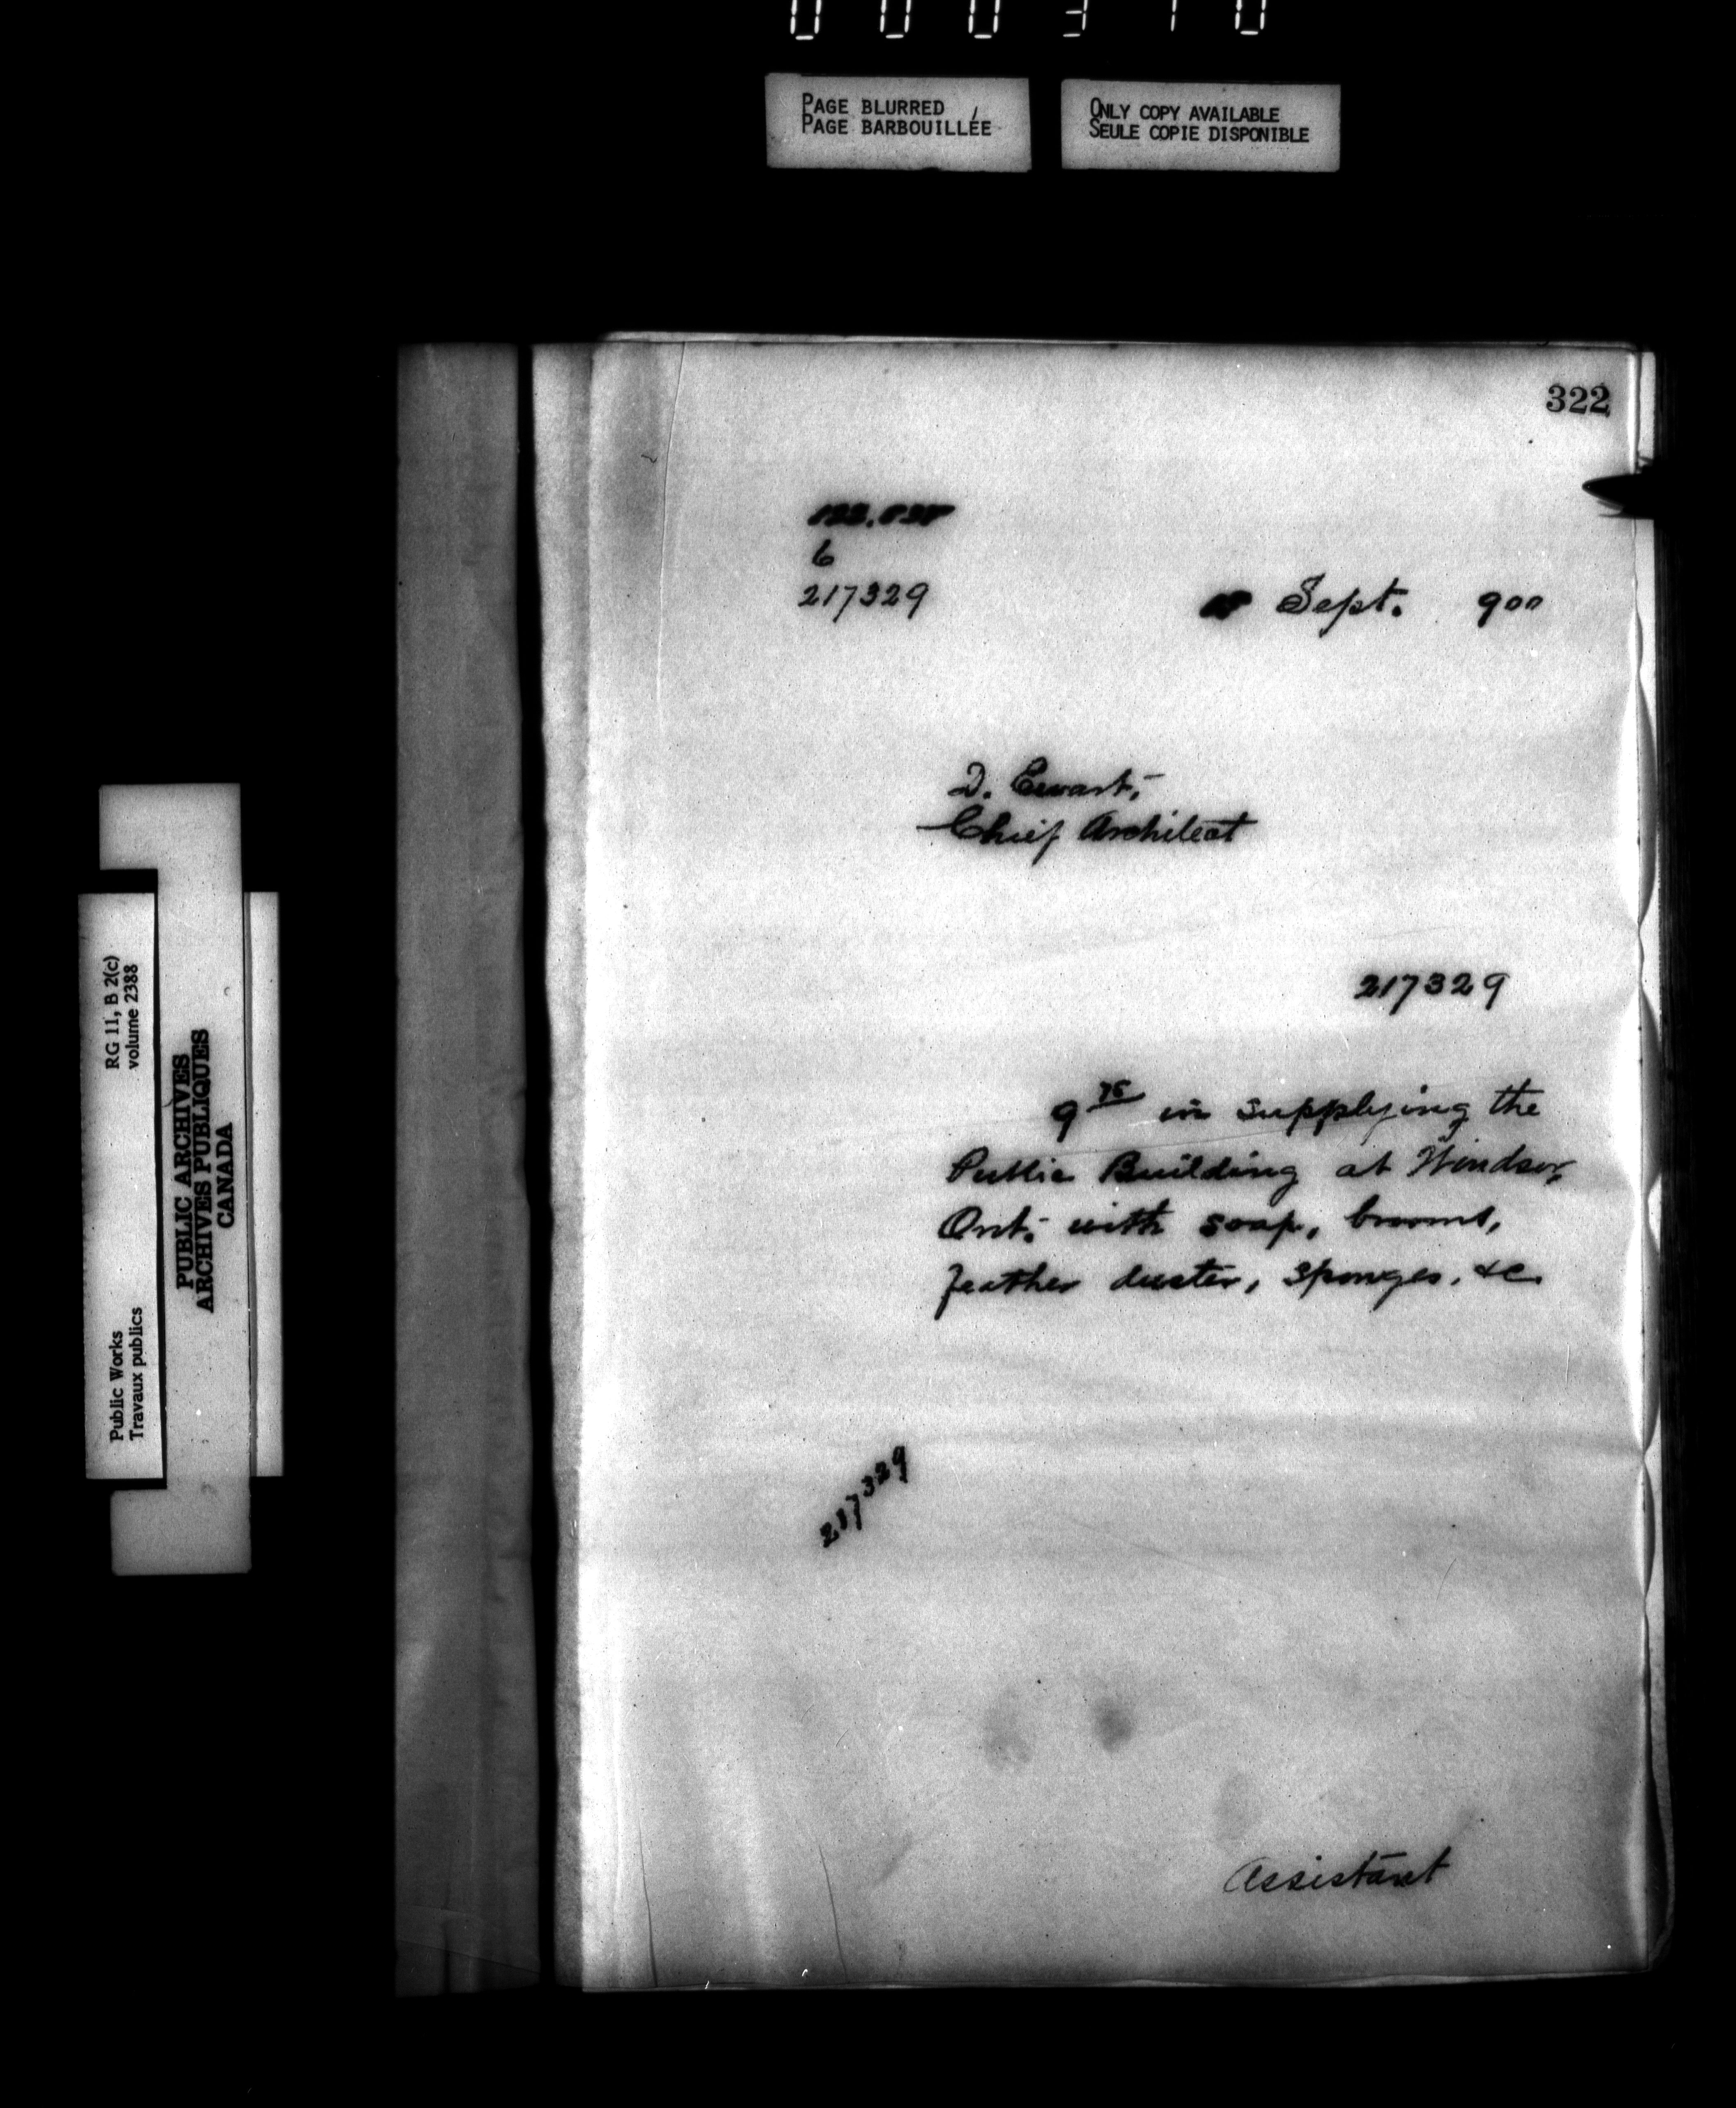 000310
PAGE BLURRED
PAGE BARBOUILLÉE
ONLY COPY AVAILABLE
SEULE COPIE DISPONIBLE
322
6
217329
Sept. 900
D. Ewart,
Chief Architect
217329
9 75 in supplying the
Public Building at Windsor,
Ont. with soap, brooms,
feather duster, sponges, &c.
217329
Assistant
RG 11, B 2(c)
volume 2388
Public Works
Travaux publics
PUBLIC ARCHIVES
ARCHIVES PUBLIQUES
CANADA